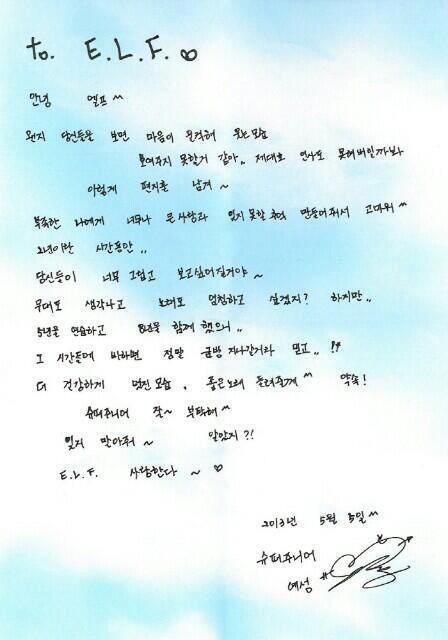 to. E.L.F. ♡
안녕 엘프^^
왠지 당신들을 보면 마음이 울컥해 웃는모습
보여주지 못할거 같아.. 제대로 인사도 못해버릴까봐
이렇게 편지를 남겨~
부족한 나에게 너무나 큰사랑과 잊지못할 추억 만들어줘서 고마워^^
2년이란 시간동안..
당신들이 너무 그립고 보고싶어질거야~
무대도 생각나고 노래도 엄청하고 싶겠지? 하지만..
5년을 연습하고 8년을 함께 했으니..
그 시간들에 비하면 정말 금방 지나갈거라 믿고.. !?
더 건강하게 멋진 모습, 좋은노래 들려줄게^^ 약속!
슈퍼주니어 잘~ 부탁해^^
잊지 말아줘~ 알았지?!
E.L.F. 사랑한다~ ♡
2013년 5월 5일^^
슈퍼주니어
예성